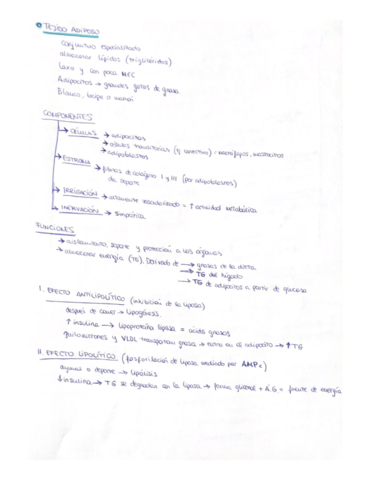 TEJIDO ADIPOSO
conjuntivo especializado
almacenar lípidos (triglicéridos)
Laxo y con poca MEC
Adipocitos → grandes gotas de grasa
Blanco, beige o marrón
COMPONENTES
→ CÉLULAS → adipocitos
→ células transitorias (tj conectivo): macrófagos, mastocitos
→ adipoblastos
→ ESTROMA → fibras de colágeno I y III (por adipoblastos)
de soporte
→ IRRIGACIÓN → altamente vascularizado = ↑ actividad metabólica
→ INERVACIÓN → simpática
FUNCIONES
→ aislamiento, soporte y protección a los órganos
→ almacenar energía (TG). Derivado de → grasas de la dieta
→ TG del hígado
→ TG de adipocitos a partir de glucosa
I. EFECTO ANTILIPOLÍTICO (inhibición de la lipasa)
después de comer → Lipogénesis.
↑ insulina → Lipoproteína lipasa = ácidos grasos
quilomicrones y VLDL transportan grasa → entra en el adipocito → ↑ TG
II. EFECTO LIPOLÍTICO (fosforilación de lipasa mediado por AMPc)
ayunas o deporte → Lipólisis
↓ insulina → TG se degradan con la lipasa → forma glicerol + AG = fuente de energía